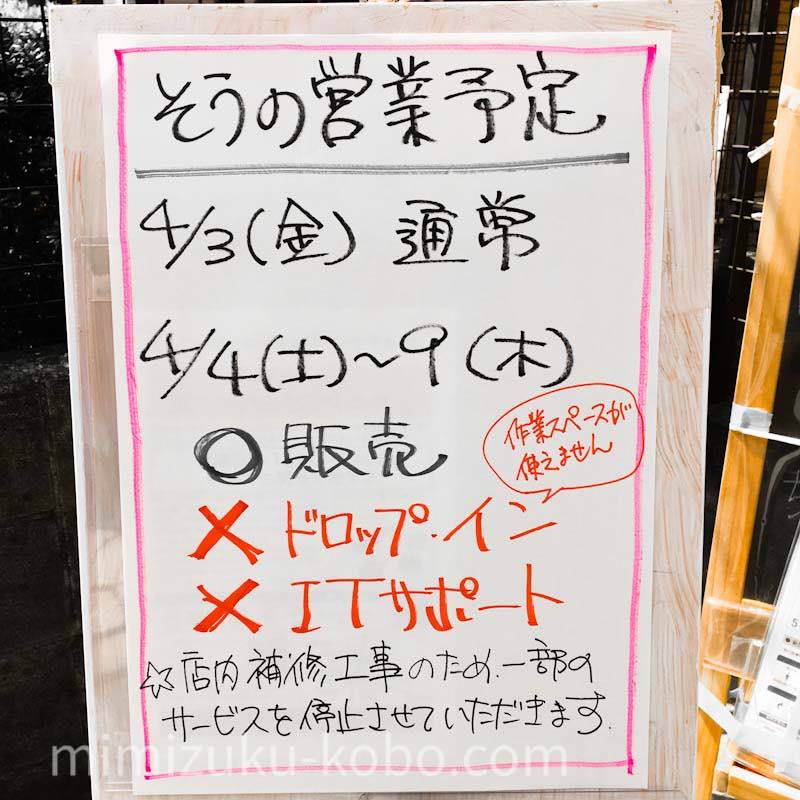 そうの営業予定
4/3(金) 通常
4/4(土)～9(木)
○販売
作業スペースが
使えません
×ドロップ・イン
×ITサポート
☆店内補修工事のため、一部の
サービスを停止させていただきます.
mimizuku-kobo.com